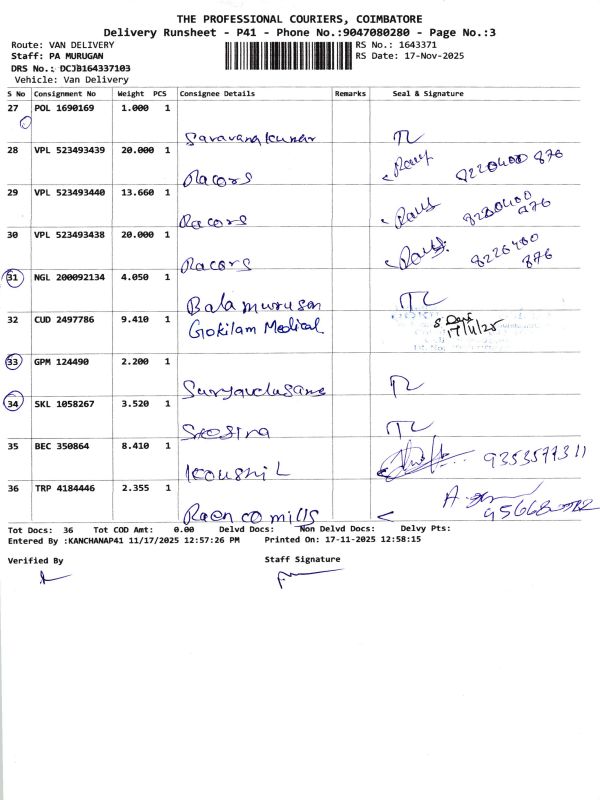 THE PROFESSIONAL COURIERS, COIMBATORE
Delivery Runsheet - P41 - Phone No.:9047080280 - Page No.:3
Route: VAN DELIVERY RS No.: 1643371
Staff: PA MURUGAN RS Date: 17-Nov-2025
DRS No.: DCJB164337103
Vehicle: Van Delivery
S No Consignment No Weight PCS Consignee Details Remarks Seal & Signature
27 POL 1690169 1.000 1
Saravana kumar TL
28 VPL 523493439 20.000 1
Racors 8220400 876
29 VPL 523493440 13.660 1
Racors
30 VPL 523493438 20.000 1
Racors 8220400
876
31 NGL 200092134 4.050 1
Balamurugan TL
32 CUD 2497786 9.410 1 Gokilam Medical
17/11/25
33 GPM 124490 2.200 1
TL
34 SKL 1058267 3.520 1
TL
35 BEC 350864 8.410 1
Koushil 9353577311
36 TRP 4184446 2.355 1
Raenco mills
Tot Docs: 36 Tot COD Amt: 0.00 Delvd Docs: Non Delvd Docs: Delvy Pts:
Entered By :KANCHANAP41 11/17/2025 12:57:26 PM Printed On: 17-11-2025 12:58:15
Verified By Staff Signature